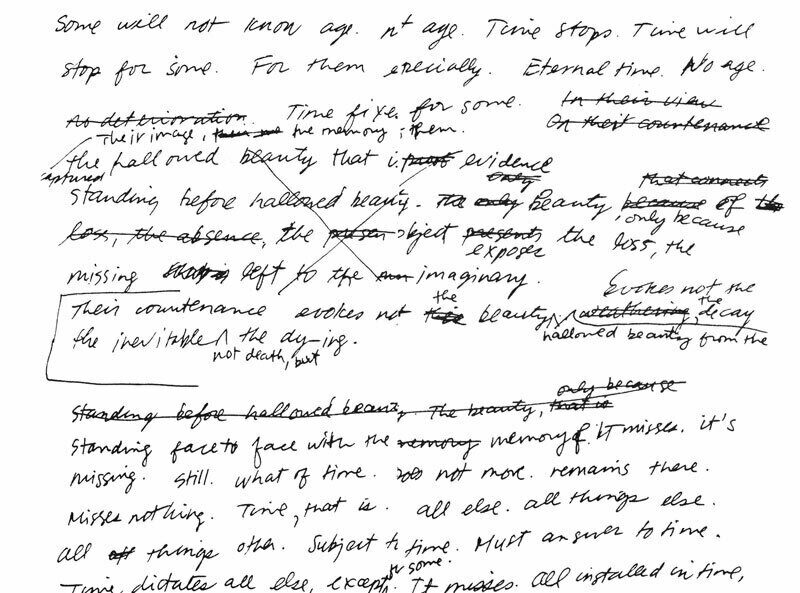 Some will not know age. nt age. Time stops. Time will
stop for some. For them especially. Eternal time. No age.
No deterioration. Time fixes for some. In their view
On their countenance
Their image, the memory of them.
captured
the hallowed beauty that is past evidence
only
standing before hallowed beauty. The only Beauty because of the
that connects
, only because
loss, the absence, the object presents the loss, the
exposes
missing left to the imaginary.
Evokes not the
Their countenance evokes not the beauty, weathering, the decay
the
hallowed beauty from the
the inevitable the dy-ing.
not death, but
Standing before hallowed beauty The beauty, that is
only because
Standing face to face with the memory memory of. IT misses. it's
missing. Still. what of time. Does not move. remains there.
Misses nothing. Time, that is. all else. all things else.
all things other. Subject to time. Must answer to time.
for some.
Time, dictates all else, except. IT misses. All installed in time,